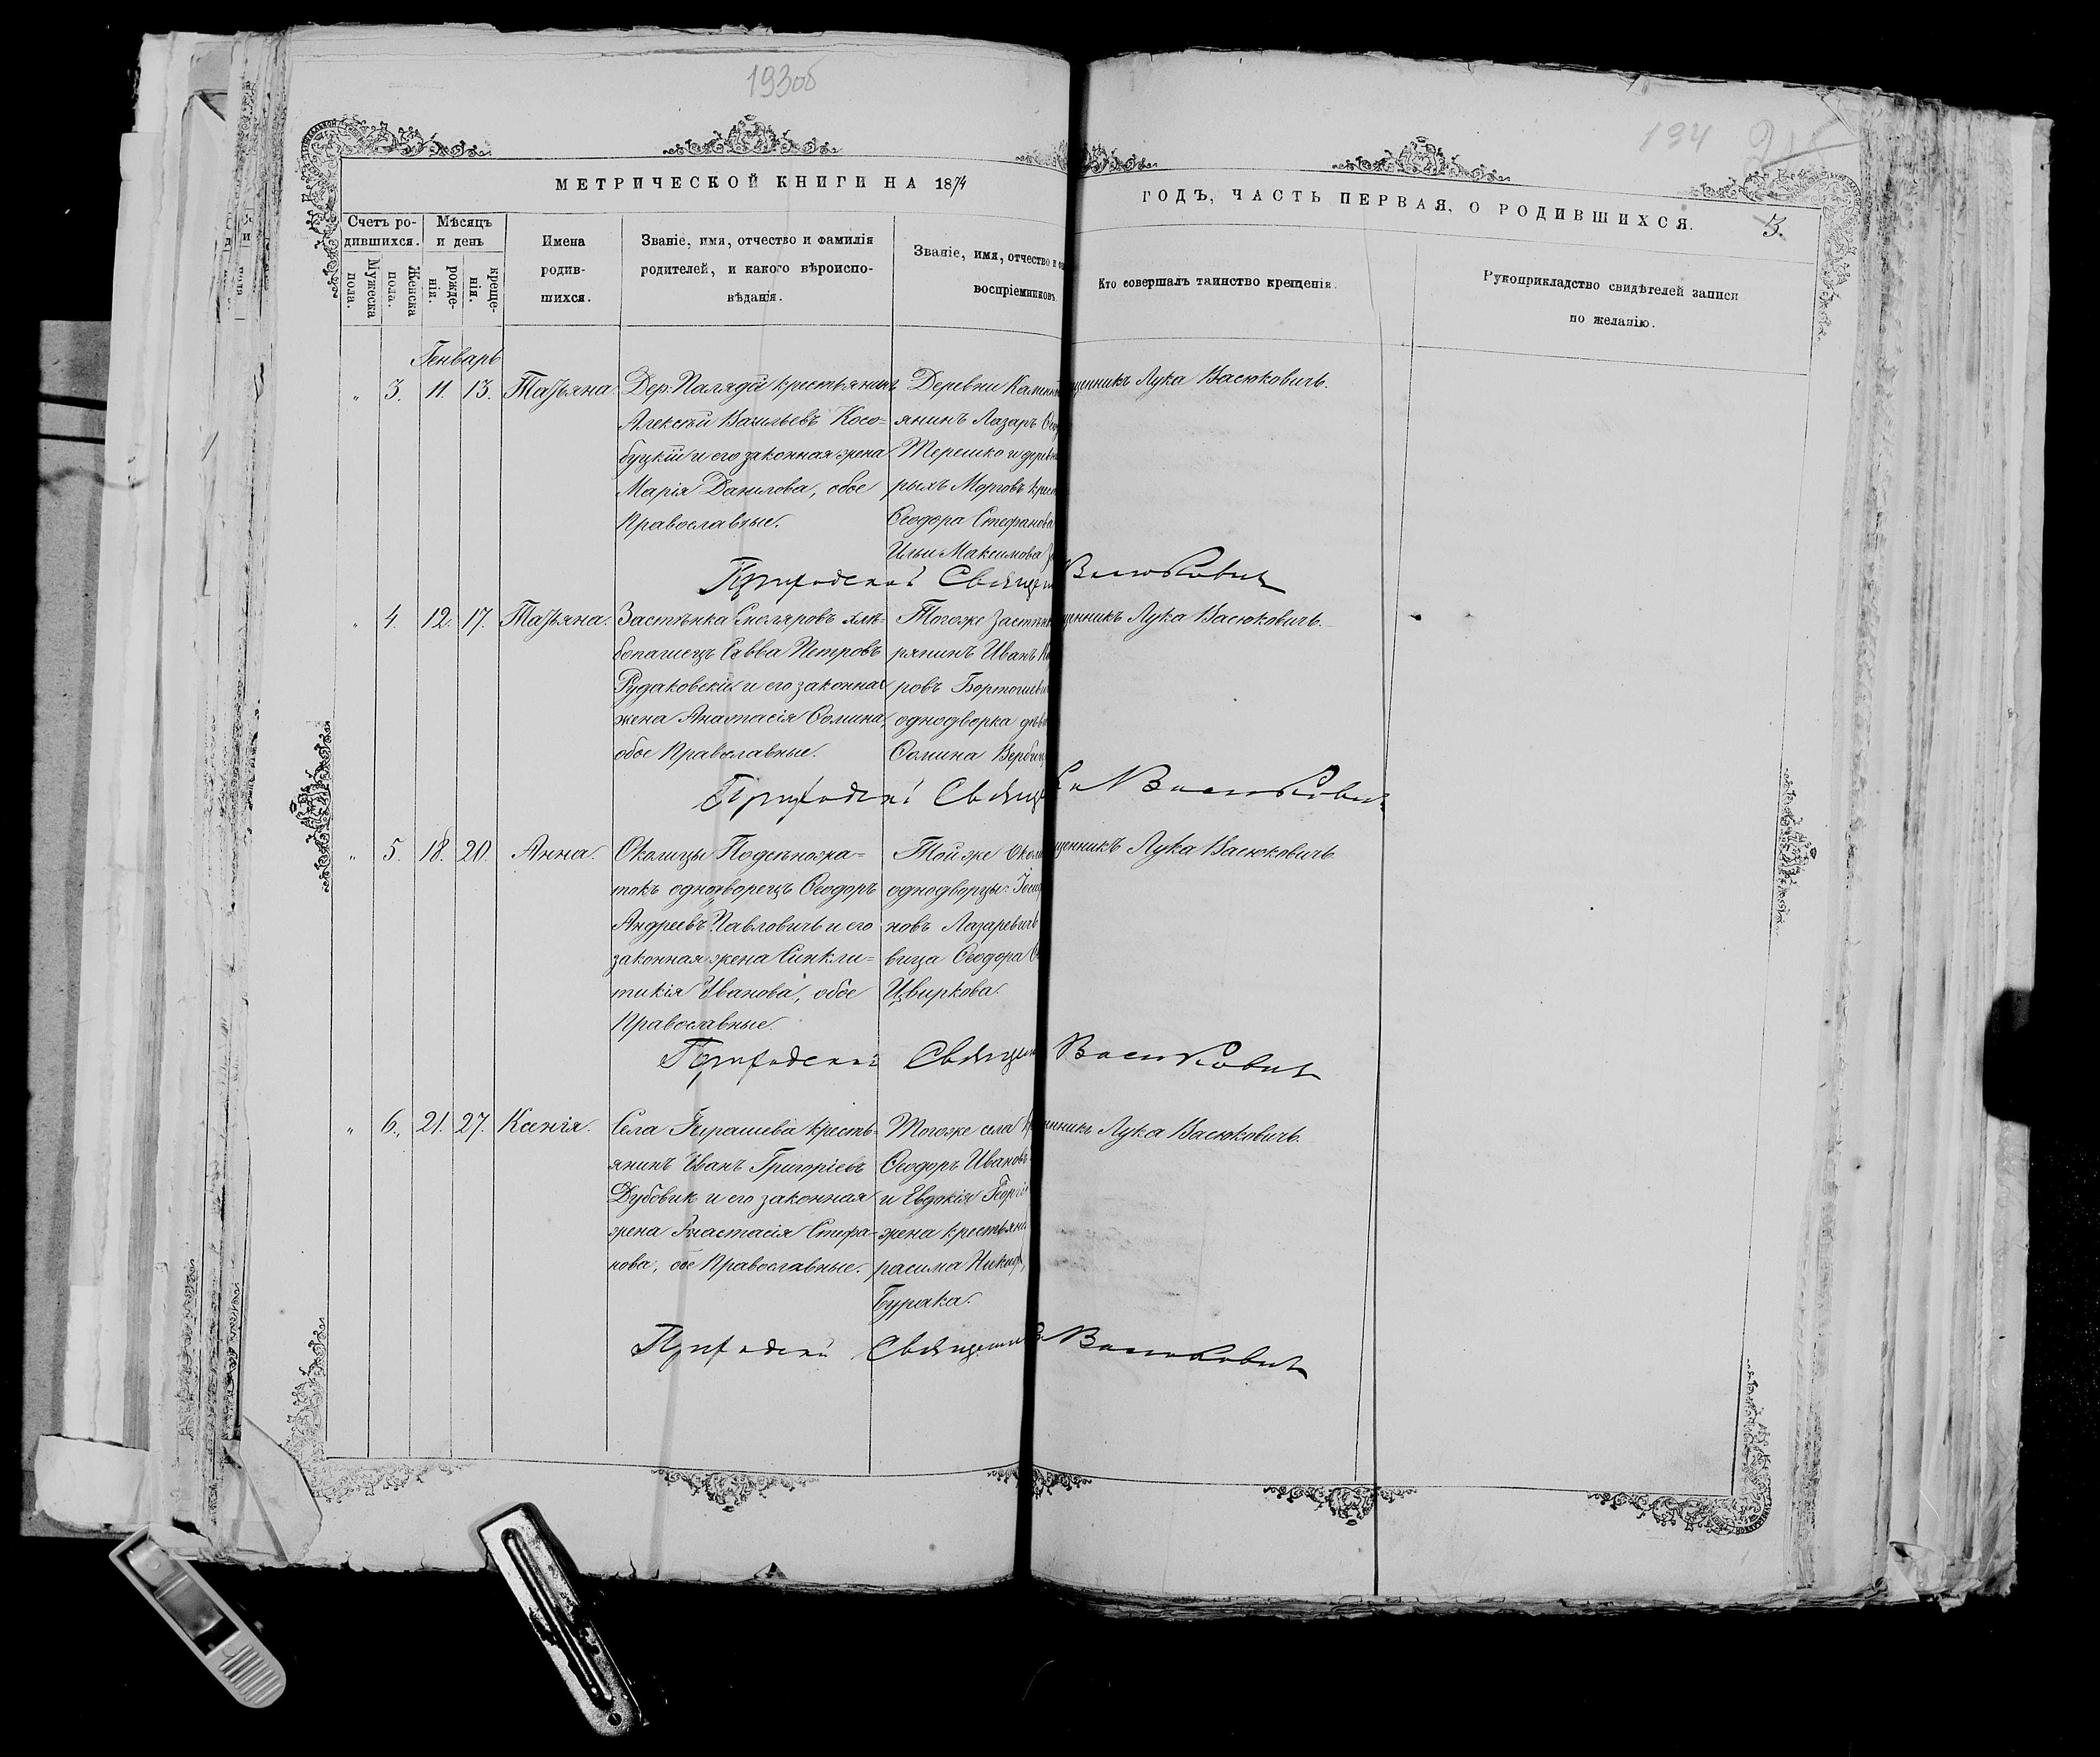 193об
194
МЕТРИЧЕСКОЙ КНИГИ НА 1874
ГОДЪ, ЧАСТЬ ПЕРВАЯ, О РОДИВШИХСЯ.
3.
Счетъ ро-
дившихся.
Мужеска
пола.
Женска
пола.
Мѣсяцъ
и день
рожде-
нія.
креще-
нія.
Имена
родив-
шихся.
Званіе, имя, отчество и фамилія
родителей, и какого вѣроиспо-
вѣданія.
Званіе, имя, отчество и
воспріемниковъ.
Кто совершалъ таинство крещенія.
Рукоприкладство свидѣтелей записи
по желанію.
Генварь
„ 3. 11. 13. Татьяна.
Дер. крестьянинъ
Алексѣй Васильевъ Косо=
буцкій и его законная жена
Марія Данилова, обое
Православные.
Деревни
янинъ Лазарь
Терешко и
рыхъ Морговъ
Ѳеодора Стефанова
Ильи Максимова
щенникъ Лука Васюковичъ.
Приходскій Васюковичъ
„ 4. 12. 17. Татьяна.
Застѣнка Смоляровъ хлѣ=
бопашецъ Савва Петровъ
Рудаковскій и его законная
жена Анастасія Ѳомина,
обое Православные.
Тогоже
рянинъ Иванъ
ровъ
однодворка
Ѳомина
щенникъ Лука Васюковичъ.
Приходскій Васюковичъ
„ 5. 18. 20. Анна.
Околицы Подсѣножа=
токъ однодворецъ Ѳеодоръ
Андреевъ Павловичъ и его
законная жена Синкли=
тикія Иванова, обое
Православные.
Той же
однодворцы:
новъ Лазаревичъ
вица Ѳеодора
Цвиркова.
щенникъ Лука Васюковичъ
Приходскій Васюковичъ
„ 6. 21. 27. Ксенія.
Села Бырашева кресть=
янинъ Иванъ Григоріевъ
Дубовик и его законная
жена Анастасія Стефа=
нова, обое Православные.
Тогоже села
Ѳеодоръ Ивановъ
и Евдокія
жена
расима
Бурака.
нникъ Лука Васюковичъ.
Приходскій Васюковичъ